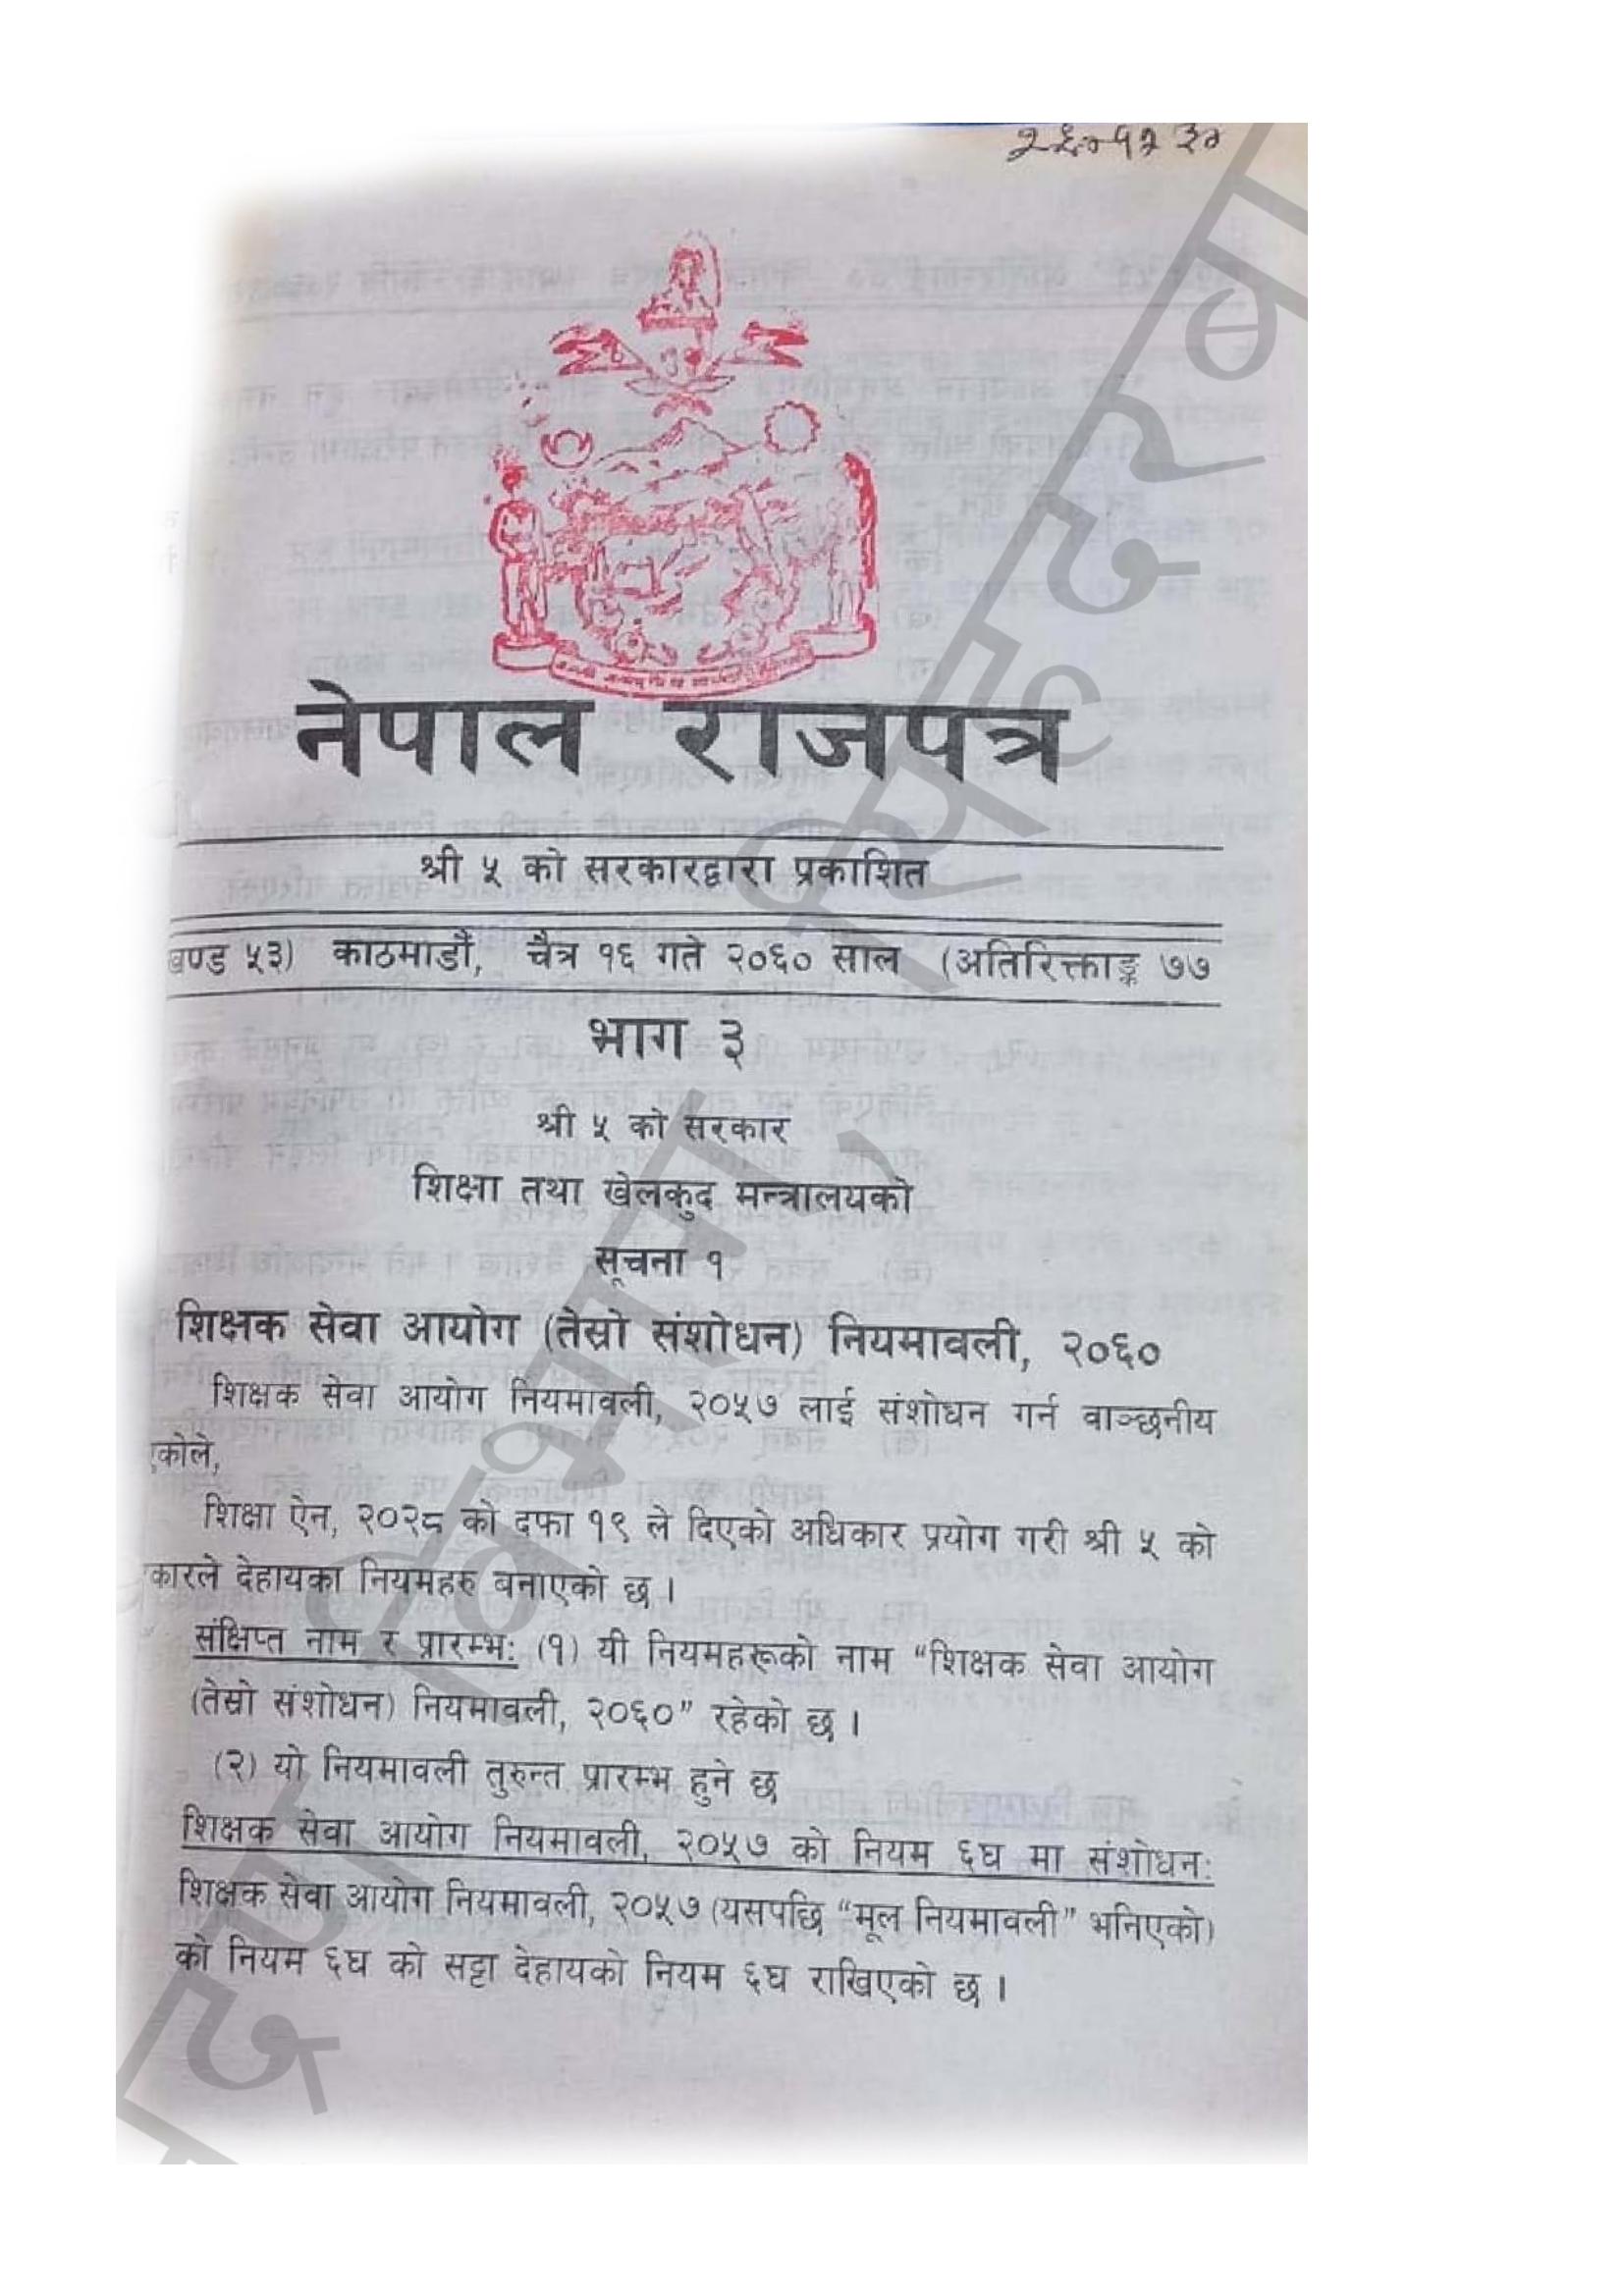 नेपाल राजपत्र
श्री ५ को सरकारद्वारा प्रकाशित
खण्ड ५३) काठमाडौं, चैत्र १६ गते २०६० साल (अतिरिक्ताङ्क ७७
भाग ३
श्री ५ को सरकार
शिक्षा तथा खेलकुद मन्त्रालयको
सूचना १
शिक्षक सेवा आयोग (तेस्रो संशोधन) नियमावली, २०६०
शिक्षक सेवा आयोग नियमावली, २०५७ लाई संशोधन गर्न वाञ्छनीय
एकोले,
शिक्षा ऐन, २०२८ को दफा १९ ले दिएको अधिकार प्रयोग गरी श्री ५ को
कारले देहायका नियमहरु बनाएको छ ।
संक्षिप्त नाम र प्रारम्भ: (१) यी नियमहरूको नाम “शिक्षक सेवा आयोग
(तेस्रो संशोधन) नियमावली, २०६०” रहेको छ ।
(२) यो नियमावली तुरुन्त प्रारम्भ हुने छ
शिक्षक सेवा आयोग नियमावली, २०५७ को नियम ६घ मा संशोधन:
शिक्षक सेवा आयोग नियमावली, २०५७ (यसपछि “मूल नियमावली” भनिएको)
को नियम ६घ को सट्टा देहायको नियम ६घ राखिएको छ ।